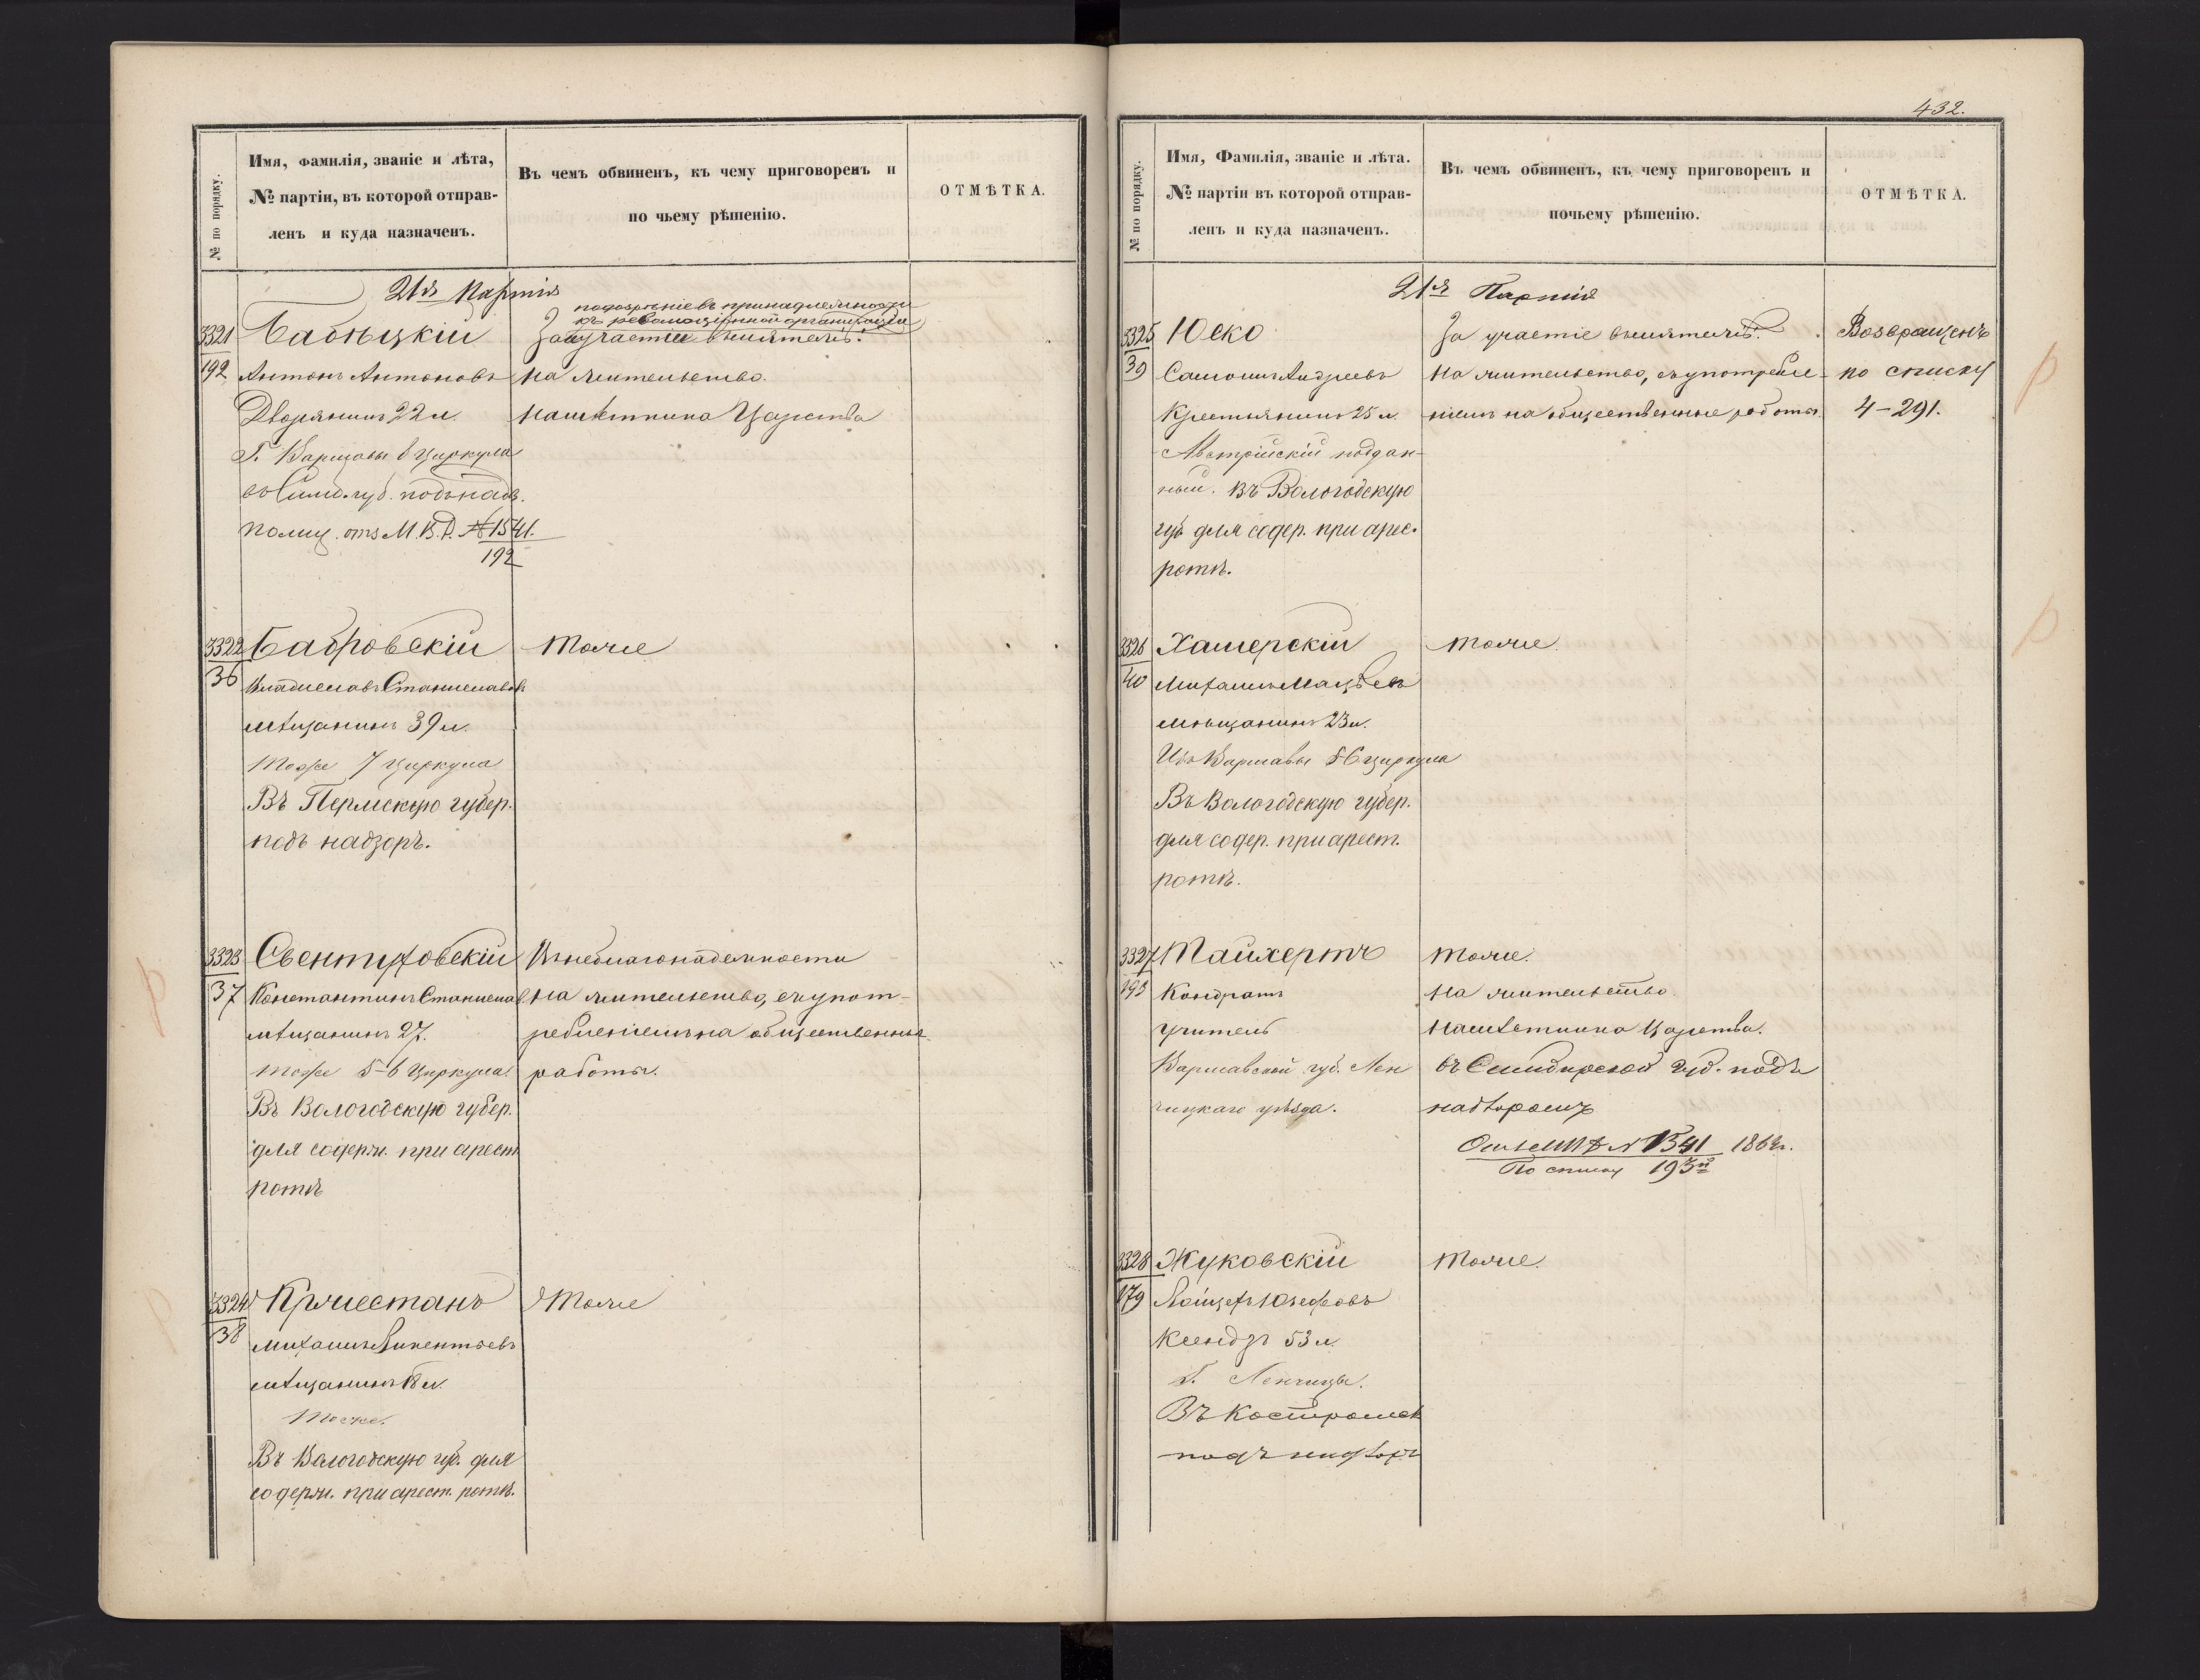 № по порядку.
Имя, фамилія, званіе и лѣта,
№ партіи, въ которой отправ-
ленъ и куда назначенъ.
Въ чемъ обвиненъ, къ чему приговоренъ и
по чьему рѣшенію.
ОТМѢТКА.
21я Партія
3321
192
Бабицкій
Антонъ Антоновъ
Дворянинъ 22 л.
Г. Варшавы 6 циркула
въ Симб. губ. подъ надз.
полиц. отз М.В.Д. № 1541.
192
подозрѣніе въ принадлежности
къ революціонной организаціи
За участіе въ мятежѣ.
на жительство.
Намѣстника Царства
3322
36
Бабровскій
Владиславъ Станиславовъ
мѣщанинъ 39 л.
тоже 7 циркула
Въ Пермскую губер.
подъ надзоръ.
тоже
3323
37
Свентуховскій
Константинъ Станислав
мѣщанинъ 27.
тоже 5-6 циркула.
Въ Вологодскую губер.
для содерж. при арест
ротѣ
Въ неблагонадежности
на жительство, съ упот-
ребленіемъ на общественныя
работы.
3324
38
Михаилъ Викентьевъ
мѣщанинъ 18 л.
тоже.
Въ Вологодскую губ. для
содерж. при арест. ротѣ.
тоже
432.
№ по порядку.
Имя, Фамилія, званіе и лѣта.
№ партіи въ которой отправ-
ленъ и куда назначенъ.
Въ чемъ обвиненъ, къ чему приговоренъ и
почьему рѣшенію.
ОТМѢТКА.
21я Партія
3325
39
Юско
Самоилъ Андреевъ
Крестьянинъ 25 л.
Австрійскій поддан-
ный. Въ Вологодскую
губ для содер. при арес.
ротѣ.
За участіе въ мятежѣ.
на жительство, съ употребле-
ніемъ на общественные работы
Возвращенъ
по списку
4-291.
3326
40
Хамерскій
Михаилъ Мацѣевъ
мѣщанинъ 23 л.
Изъ Варшавы 5-6 циркула
Въ Вологодскую губер.
для содер. при арест.
ротѣ.
тоже.
3327
193
Тайхертъ
Кондратъ
учитель
Варшавской губ. Лен
чицкаго уѣзда.
тоже.
на жительство.
Намѣстника Царства.
въ Симбирской губ. подъ
надзоромъ
1541
По списку 193й
3328
179
Жуковскій
Войцехъ Юзефовъ
Ксендзъ 53 л.
Г. Ленчицы.
Въ Костромск
подъ надзоръ
тоже.